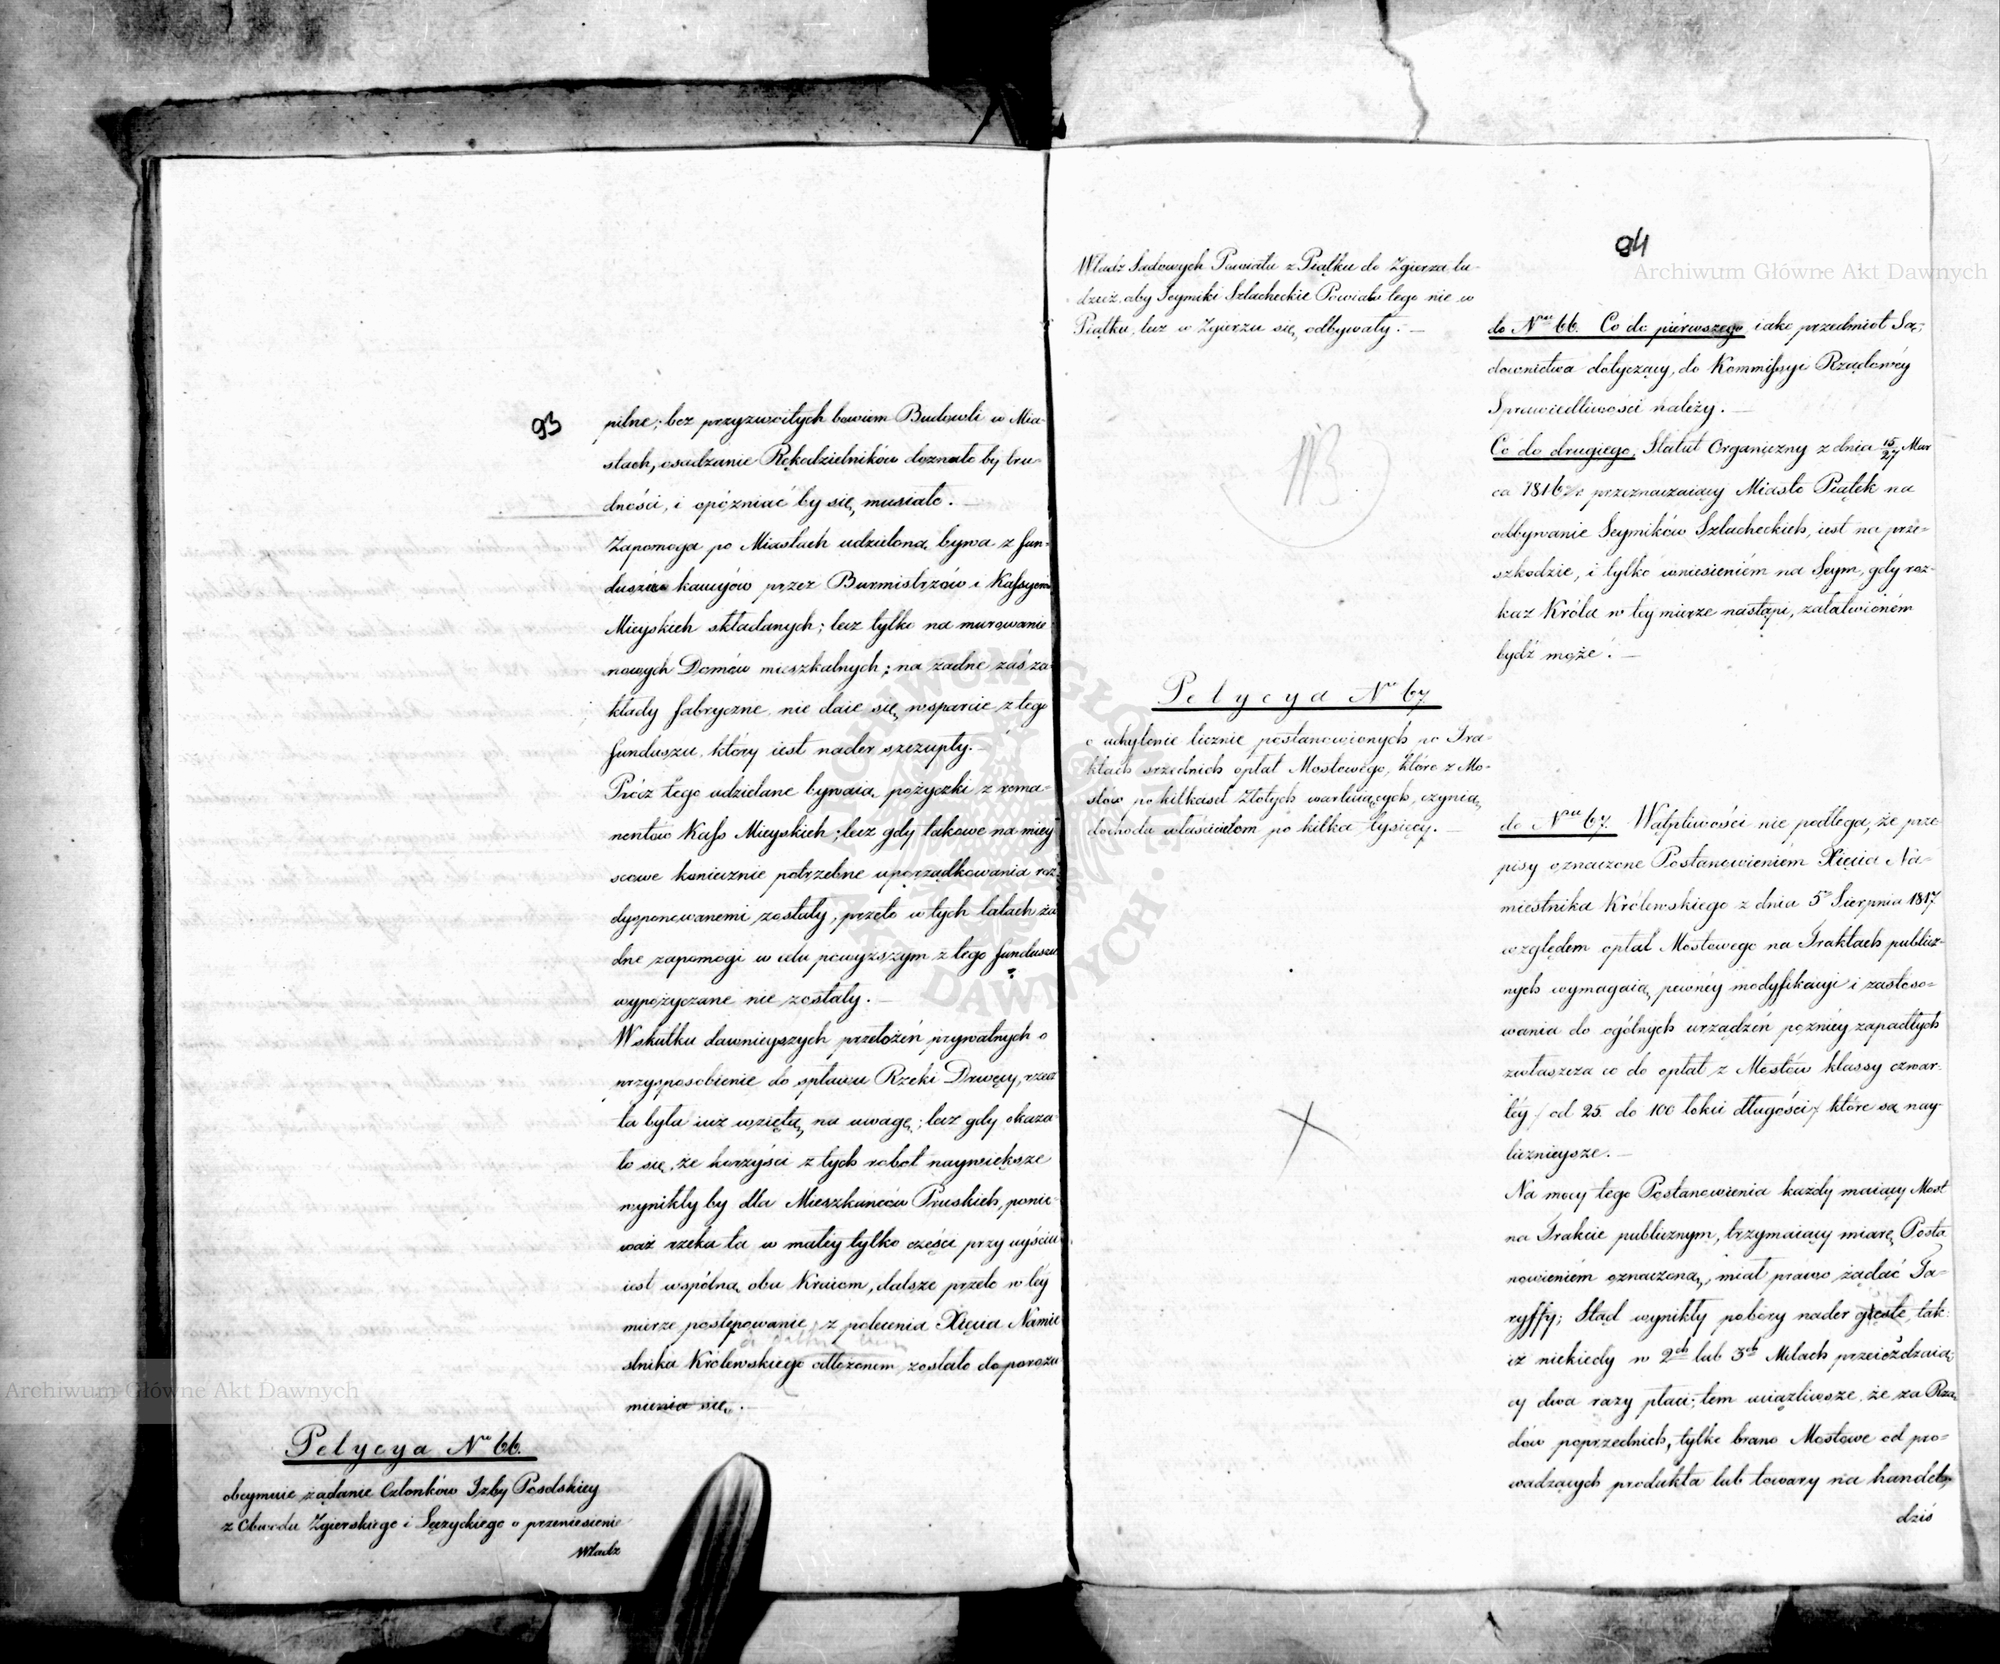 93
pilne; bez przyzwoitych bowiem Budowli w Mia-
stach, osadzanie Rękodzielników doznało by tru-
dności, i opóźniać by się musiało. —
Zapomoga po Miastach udzieloną bywa z fun-
duszów kaucyów przez Burmistrzów i Kassyerów
Mieyskich składanych; lecz tylko na murowanie
nowych Domów mieszkalnych; na żadne zaś za
kłady fabryczne nie daie się wsparcie z tego
funduszu, który iest nader szczupły. —
Prócz tego udzielane bywaią pożyczki z rema-
nentów Kass Mieyskich; lecz gdy takowe na miey
scowe koniecznie potrzebne uporządkowania roz
dysponowanemi zostały, przeto w tych latach ża
dne zapomogi w celu powyższym z tego funduszu
wypożyczane nie zostały. —
W skutku dawnieyszych przełożeń prywatnych o
przysposobienie do spławu Rzeki Drwęcy, rzecz
ta była iuż wziętą na uwagę; lecz gdy okaza
ło się, że korzyści z tych robót naywiększe
wynikły by dla Mieszkańców Pruskich, ponie-
waż rzeka ta w małey tylko części przy uyściu
iest wspólną obu Kraiom, dalsze przeto w tey
mierze postępowanie, z polecenia Xięcia Namie
stnika Królewskiego odłożonem zostało do porozu
mienia się. —
Petycya No 66.
obeymuie żądanie Członków Izby Poselskiey
z Obwodu Zgierskiego i Łęczyckiego o przeniesienie
Władz
94
Władz Sądowych Powiatu z Piątku do Zgierza tu-
dzież aby Seymiki Szlacheckie Powiatu tego nie w
Piątku, lecz w Zgierzu się odbywały. —
do Nru 66. Co do pierwszego iako przedmiot Są-
downictwa dotyczący, do Kommissyi Rządowéy
Sprawiedliwości należy. —
Co do drugiego, Statut Organiczny z dnia 15/27 Mar
ca 1816 r. przeznaczaiący Miasto Piątek na
odbywanie Seymików Szlacheckich, iest na prze-
szkodzie, i tylko wniesieniem na Seym, gdy roz-
kaz Króla w téy mierze nastąpi, załatwioném
bydź może. —
Petycya No 67.
o uchylenie licznie postanowionych po Tra-
ktach srzednich opłat Mostowego, które z Mo-
stów po kilkaset Złotych wartuiących, czynią
dochodu właścicielom po kilka tysięcy. —
do Nru 67. Wątpliwości nie podlega, że prze-
pisy oznaczone Postanowieniem Xięcia Na-
miestnika Królewskiego z dnia 5go Sierpnia 1817
względem opłat Mostowego na Traktach publicz-
nych wymagaią pewney modyfikacyi i zastoso-
wania do ogólnych urządzeń pózniéy zapadłych
zwłaszcza co do opłat z Mostów klassy czwar-
téy / od 25. do 100 łokci długości / które są nay-
licznieysze. —
Na mocy tego Postanowienia każdy maiący Most
na Trakcie publicznym, trzymaiący miarę Posta
nowieniem oznaczoną, miał prawo żądać Ta-
ryffy; Stąd wynikły pobory nader gęste, tak
iż niekiedy w 2ch lub 3ch Milach przeieżdzaią-
cy dwa razy płaci; tem uciążliwsze, że za Rzą-
dów poprzednich, tylko brano Mostowe od pro-
wadzących produkta lub towary na handel,
dziś
Archiwum Główne Akt Dawnych
Archiwum Główne Akt Dawnych
ARCHIWUM GŁÓWNE AKT DAWNYCH